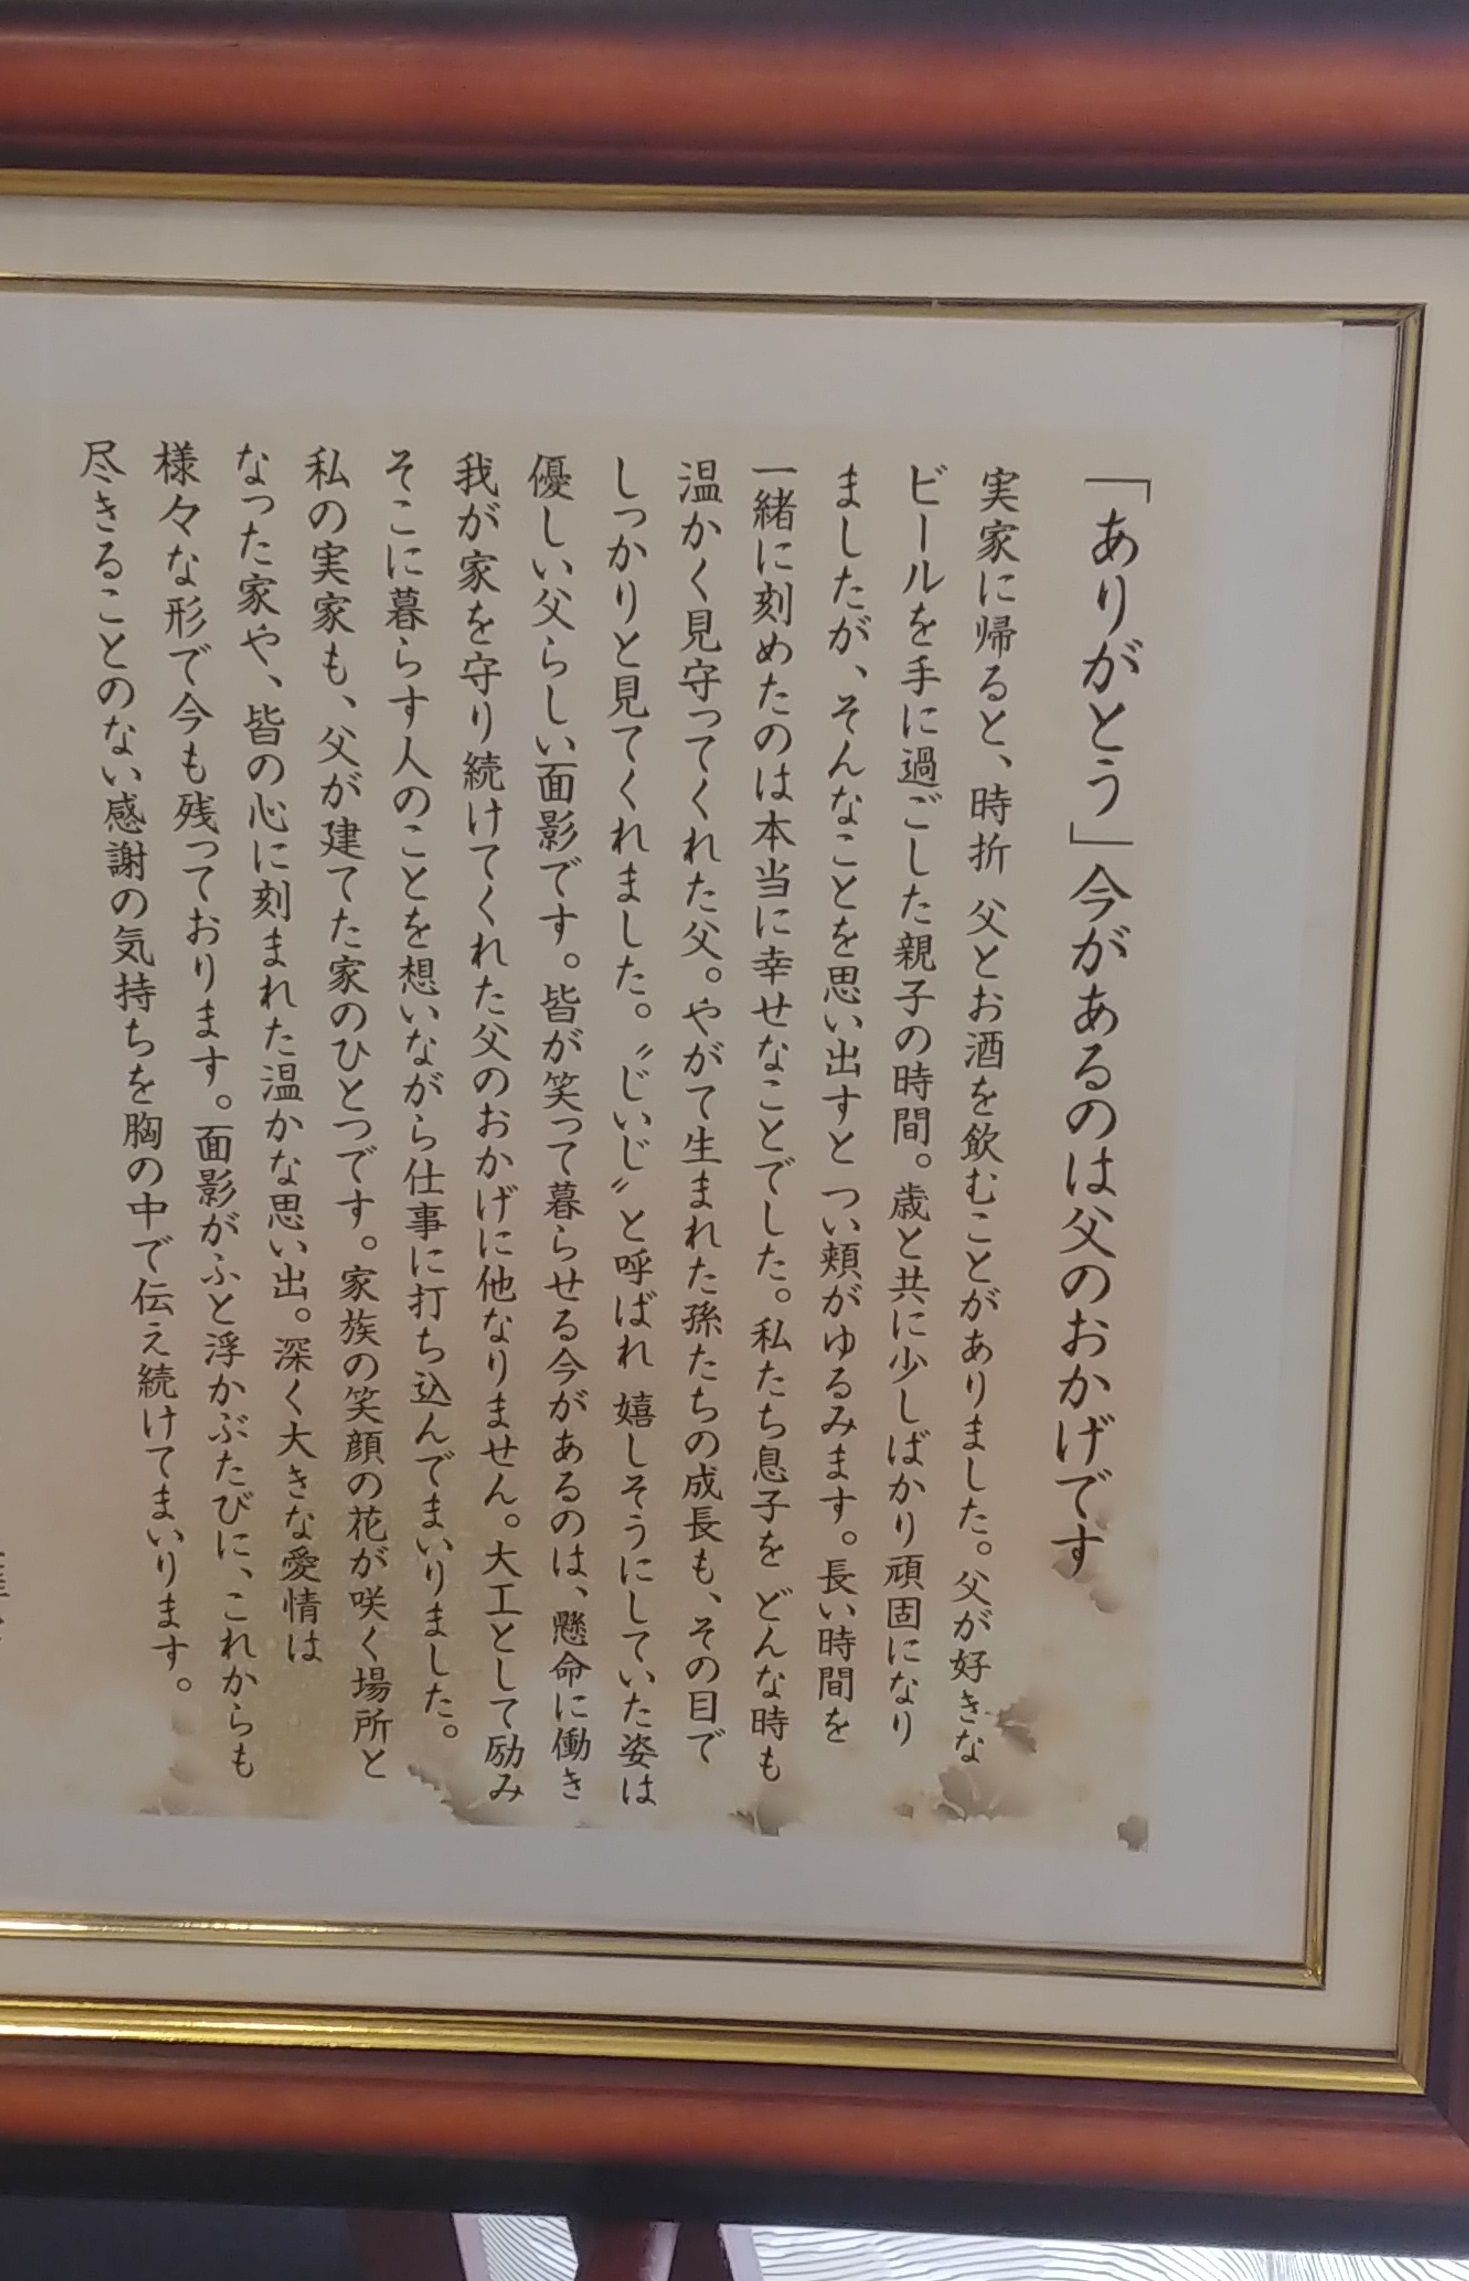 「ありがとう」今があるのは父のおかげです
実家に帰ると、時折 父とお酒を飲むことがありました。父が好きな
ビールを手に過ごした親子の時間。歳と共に少しばかり頑固になり
ましたが、そんなことを思い出すと つい頬がゆるみます。長い時間を
一緒に刻めたのは本当に幸せなことでした。私たち息子を どんな時も
温かく見守ってくれた父。やがて生まれた孫たちの成長も、その目で
しっかりと見てくれました。〝じいじ〟と呼ばれ 嬉しそうにしていた姿は
優しい父らしい面影です。皆が笑って暮らせる今があるのは、懸命に働き
我が家を守り続けてくれた父のおかげに他なりません。大工として励み
そこに暮らす人のことを想いながら仕事に打ち込んでまいりました。
私の実家も、父が建てた家のひとつです。家族の笑顔の花が咲く場所と
なった家や、皆の心に刻まれた温かな思い出。深く大きな愛情は
様々な形で今も残っております。面影がふと浮かぶたびに、これからも
尽きることのない感謝の気持ちを胸の中で伝え続けてまいります。